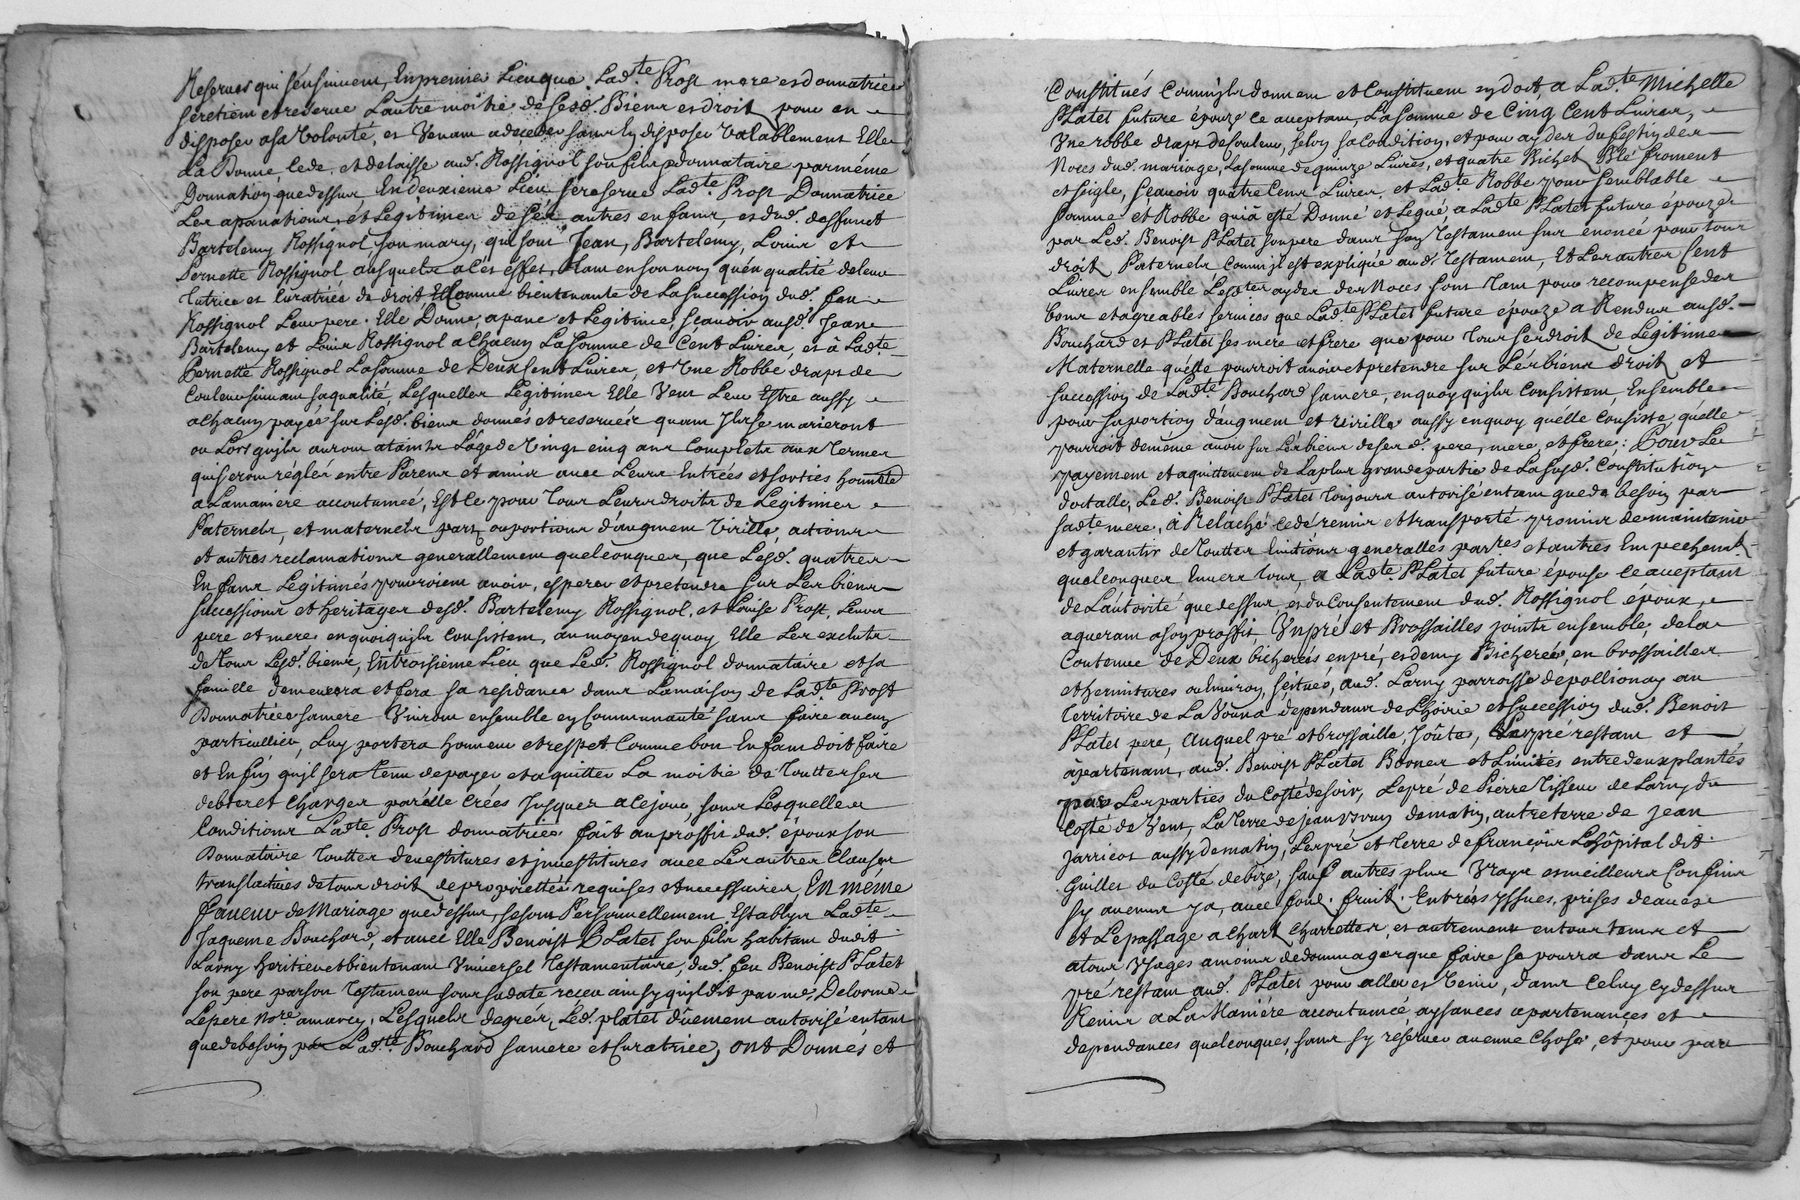 Reserves qui sensuivent, En premier Lieu que Lad.te Prost mere et donnatrice
se retient et reserve Lautre moitié de sesd. Biens et droits pour en
disposer a sa Volonté, et Venant a deceder sans En disposer Valablement Elle
La Donne, cede, et delaisse aud. Rossignol son fils donnataire par même
Donnation que dessus En deuxieme Lieu se reserve Lad.te Prost Donnatrice
Les apanations et Legitimes de ses autres enfans, et dud. deffunct
Bartelemy Rossignol son mary, qui sont Jean, Bartelemy, Louis et
Pernette Rossignol ausquels a cés effet, tant en son nom qu'en qualité de leur
tutrice et Curatrice de droit Et Comme bientenante de La succession dud. feu
Rossignol Leur pere. Elle Donne, apane et Legitime, scavoir ausd. Jean
Bartelemy et Louis Rossignol a Chacun La somme de Cent Livres, et à Lad.te
Pernette Rossignol La somme de Deux Cent Livres, et Une Robbe draps de
Couleur suivant sa qualité, Lesquelles Legitimes Elle Veut Leur Estre aussy
a Chacun payéé sur Lesd. biens donnés et reservés quant Ils se marieront
ou Lors quils auront ataints Lâge de Vingt cinq ans Complets aux termes
qui seront reglés entre Parens et amis avec Leurs Entrées et sorties honneste
a La maniere accoutumeé, Est Ce pour tous Leurs droits de Legitimes
Paternels, et maternels parts ou portions d'augment Virille, actions
et autres reclamations generallement quelconques, que Lesd. quatres
Enfans Legitimés pourroient avoir, esperer et pretendre sur Les biens
successions et heritages desd. Bartelemy Rossignol, et Louise Prost, Leurs
pere et mere en quoi quils Consistent, au moyen de quoy Elle Les exclut
de tous Lesd. biens, En troisieme Lieu que Led. Rossignol donnataire et sa
famille demeurera et fera sa residance dans La maison de Lad.te Prost
Donnatrice sa mere Vivront ensemble en Communauté sans faire aucun
particullier, Luy portera honneur et respet Comme bon Enfant doit faire
et Enfin quil sera tenu de payer et aquitter La moitié de toutte ses
debtes et Charges par elle Créés Jusques a ce jour, sous Lesquelles
Conditions Lad.te Prost donnatrice fait au proffit dud. époux son
Donnataire touttes devestitures et jnvestitures avec Les autres Clauses
translatives de tous droits de proprietté requises et necessaires En méme
faveur de Mariage que dessus, se sont Personnellement Establys Lad.te
Jaqueme Bouchard, et avec Elle Benoist Platet son fils habitant dudit
Larny heritier et bientenant Universel Testamentaire, dud. feu Benoist Platet
son pere par son Testament sous sa date receu ainsy quil dit par me. Delorme
Le pere No.re a marcy, Lesquels de gréé, Led. platet dûement autorisé entant
que de besoin par Lad.te Bouchard sa mere et Curatrice, ont Donnés et
Constitués Comme ils donnent et Constituent en dot a Lad.te Michelle
Platet future épouze ce acceptant, La somme de Cinq Cent Livres,
Une robbe draps de Couleur, selon sa condition, et pour ayder du festin des
Noces dud. mariage, La somme de quinze Livres, et quatre Bichets Blé froment
et seigle, sçavoir quatre Cent Livres et Lad.te Robbe pour semblable
somme et Robbe qui a esté Donné et Legué, a Lad.te Platet future épouze
par Led. Benoist Platet son pere dans son Testament sus enoncé pour tous
droits Paternels Comm'il est expliqué aud. Testament, Et Les autres Cent
Livres ensemble Lesd.tes ayder des Noces sont tant pour recompense des
bons et agreables services que Lad.te Platet future épouze a Rendus ausd.
Bouchard et Platet ses mere et frere que pour tous ses droits de Legitime
Maternelle qu'elle pourroit avoir et pretendre sur Les biens droits et
succession de Lad.te Bouchard sa mere, en quoy quils Consistent, Ensemble
pour sa portion d'augment et Virille aussy en quoy qu'elle Consiste, qu'elle
pourroit de même avoir sur Les biens de sesd. pere, mere, et frere; Pour Le
payement et aquittement de La plus grande partie de La susd. Constitution
dottalle, Led. Benoist Platet toujours autorisé entant que de besoin par
sad.te mere, a Relaché cedé remis et transporté promis de maintenir
et garantir de touttes Evictions generalles par.res et autres Empechem.ts
quelconques Envers tous, a Lad.te Platet future épouse ce acceptant
de L'autorité que dessus, et du Consentement dud. Rossignol époux,
aquerant a son proffit, Un pré et Brossailles joints ensemble, de la
Contenue de Deux bicherées en pré, et demy Bicherée, en brossailles
et hermitures ou Environ, scitués, aud. Larny parroisse de pollionay au
territoire de La Vouna dependant de L'hoirie et succession dud. Benoist
Platet pere, Auquel pré et brossaille, Joûte, Le pré restant et
apartenant, aud. Benoist Platet Bornes et Limités entre deux plantés
par Les parties du Costé de soir, Le pré de Pierre Tisseur de Larny du
Costé de Vent, La Terre de jean Vivan de matin, autre terre de jean
Jarricot aussy de matin, Les pré et terre de francois Lhôpital dit
Guillet du Costé de bize, sauf autres plus Vrays et meilleurs Confins
sy aucuns y a, avec fond, fruits, Entrées yssues, prises deaux
et Le passage a Chars Charrettes et autrement en tous tems et
a tous Usages a moins de dommage que faire se pourra dans Le
pré restant aud. Platet pour aller et Venir, dans Celuy cy dessus
Remis a La Maniére accoutumée, aysances apartenances et
dependances quelconques, sans s'y réserver aucune Chose, et pour par